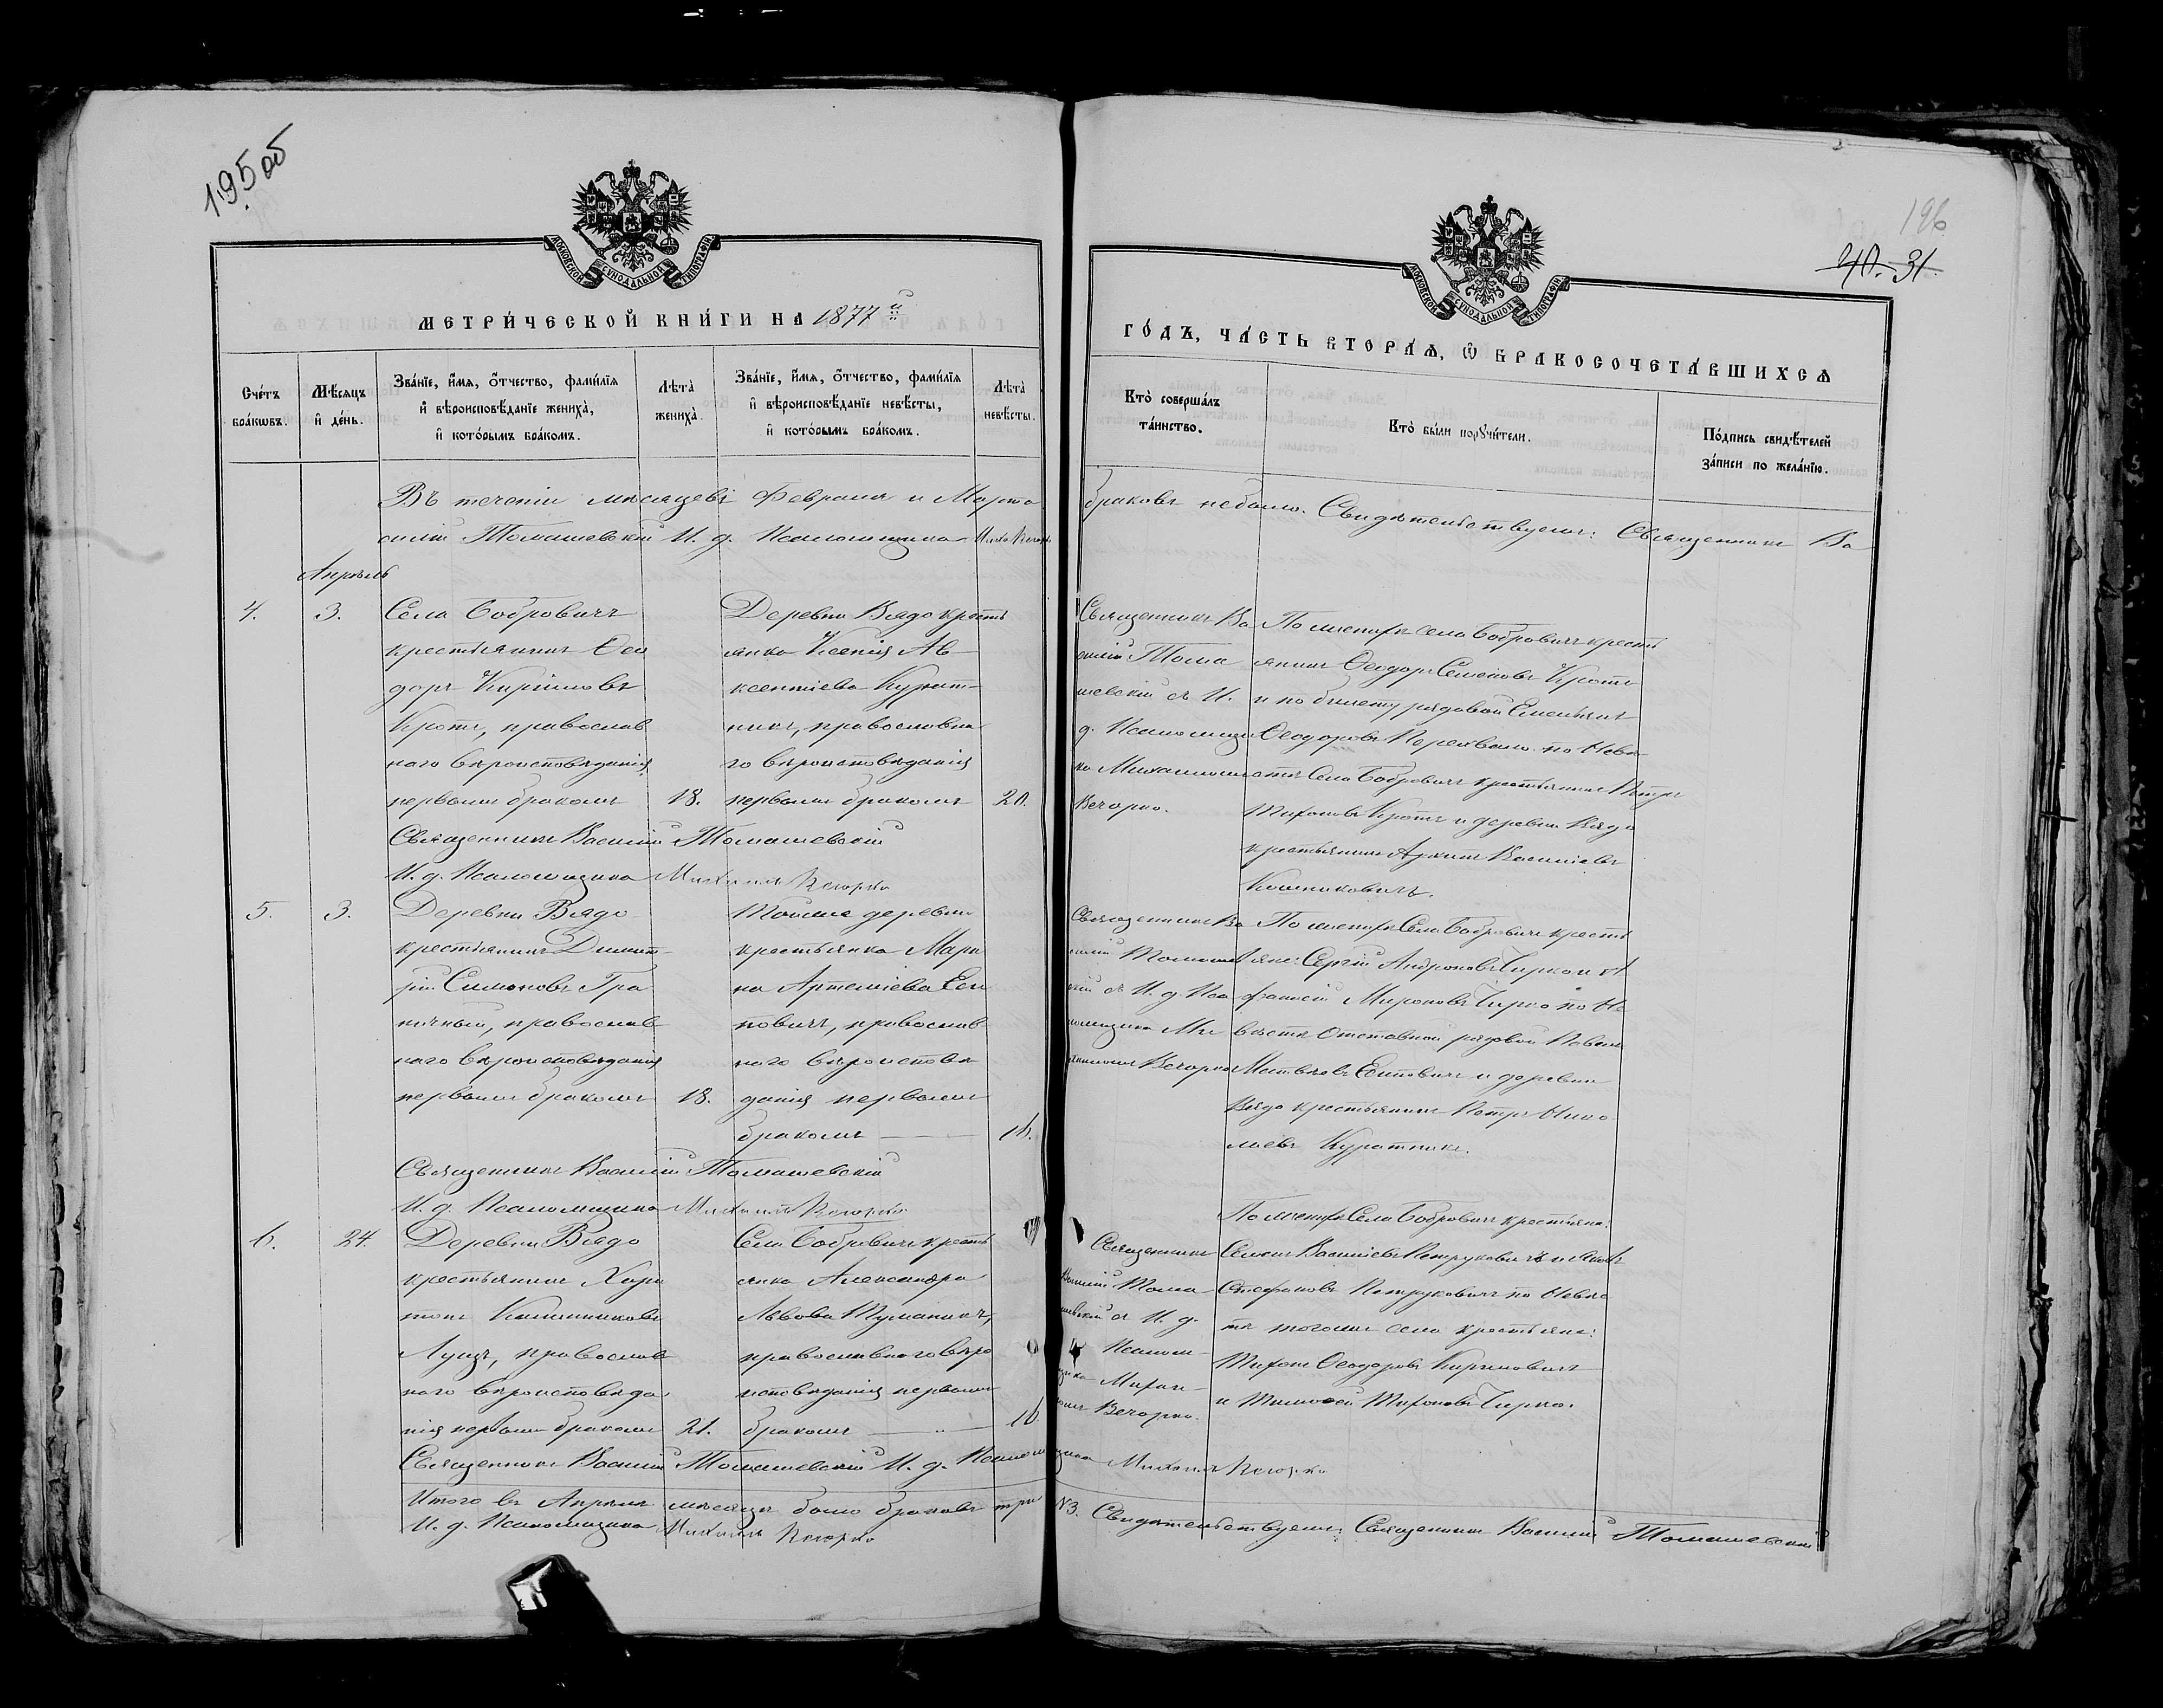 195 об
196
40. 31.
МОСКОВСКОЙ СѴНОДАЛЬНОЙ ТИПОГРАФІИ
МЕТРИ́ЧЕСКОЙ КНИ́ГИ НА 1877 й
Сче́тъ бра́кѡвъ.
Мѣ́сяцъ и҆ де́нь.
Зва́нїе, и҆́мѧ, ѻ҆́тчество, фами́лїѧ
и҆ вѣроисповѣ́данїе жениха̀,
и҆ кото́рымъ бра́комъ.
Лѣта̀ жениха̀.
Зва́нїе, и҆́мѧ, ѻ҆́тчество, фами́лїѧ
и҆ вѣроисповѣ́данїе невѣ́сты,
и҆ кото́рымъ бра́комъ.
Лѣта̀ невѣ́сты.
МОСКОВСКОЙ СѴНОДАЛЬНОЙ ТИПОГРАФІИ
ГО́ДЪ, ЧА́СТЬ ВТОРА́Ѧ, Ѡ҆ БРАКОСОЧЕТА́ВШИХСѦ
Кто̀ соверша́лъ
та́инство.
Кто̀ бы́ли порꙋчи́тели.
По́дпись свидѣ́телей
за́писи по жела́нїю.
Въ теченіи мѣсяцевъ Февраля и Марта браковъ небыло. Свидѣтельствуемъ: Священникъ Ва
силій Томашевскій И. д. Псаломщика Михаилъ Вечорко
Апрѣль
4.
3.
Села Бобровичъ
крестьянинъ Ѳео
доръ Кириловъ
Кротъ, православ
наго вѣроисповѣданія
первымъ бракомъ
18.
Деревни Вядо кресть
янка Ксенія Ав
ксентіева Курат-
никъ, православна
го вѣроисповѣданія
первымъ бракомъ
20.
Священникъ Ва
силій Тома
шевскій съ И.
д. Псаломщи
ка Михаиломъ
Вечорко.
По женихѣ села Бобровичъ кресть
янинъ Ѳеодоръ Семеновъ Кротъ
и по билету рядовой Емельянъ
Ѳеодоровъ по Невѣ
стѣ Села Бобровичъ крестьянинъ Петръ
Тихоновъ Кротъ и деревни Вядо
крестьянинъ Василіевъ
Священникъ Василій Томашевскій
И. д. Псаломщика Михаилъ Вечорко
5.
3.
Деревни Вядо
крестьянинъ Димит-
рій Симоновъ Гра
ничный, православ
наго вѣроисповѣданія
первымъ бракомъ
18.
Тойже деревни
крестьянка Мари
на Артеміева Еси
повичъ, православ
наго вѣроисповѣ
данія первымъ
бракомъ
16.
Священникъ Ва
силій Томашевс
кій съ И. д. Пса
ломщика Ми
хаиломъ Вечорко
По женихѣ Села Бобровичъ кресть
яне: Сергій Андроновъ Чирко и А
фанасій Мироновъ Чирко по Не
вѣстѣ Отставной рядовой Павелъ
Матвѣевъ Есиповичъ и деревни
Вядо крестьянинъ Петръ Нико
лаевъ Куратникъ.
Священникъ Василій Томашевскій
И. д. Псаломщика Михаилъ Вечорко
6.
24.
Деревни Вядо
крестьянинъ Хари
тонъ Каллиниковъ
Луцъ, православ
наго вѣроисповѣда
нія первымъ бракомъ
21.
Села Бобровичъ кресть
янка Александра
Львова Туманичъ,
православнаго вѣро
исповѣданія первымъ
бракомъ
16.
Священникъ
Василій Тома
шевскій съ И. д.
Псалом-
щика Михаи-
ломъ Вечорко.
По женихѣ Села Бобровичъ крестьяне:
Семенъ Василіевъ Петруковичъ и Яковъ
Стефановъ Петруковичъ по Невѣс
тѣ тогоже села крестьяне:
Тихонъ Ѳеодоровъ Кириловичъ
и Тимоѳей Тихоновъ Чирко.
Священникъ Василій Томашевскій И. д. Псаломщика Михаилъ Вечорко
Итого въ Апрѣлѣ мѣсяцѣ было браковъ три №3. Свидѣтельствуемъ: Священникъ Василій Томашевскій
И. д. Псаломщика Михаилъ Вечорко